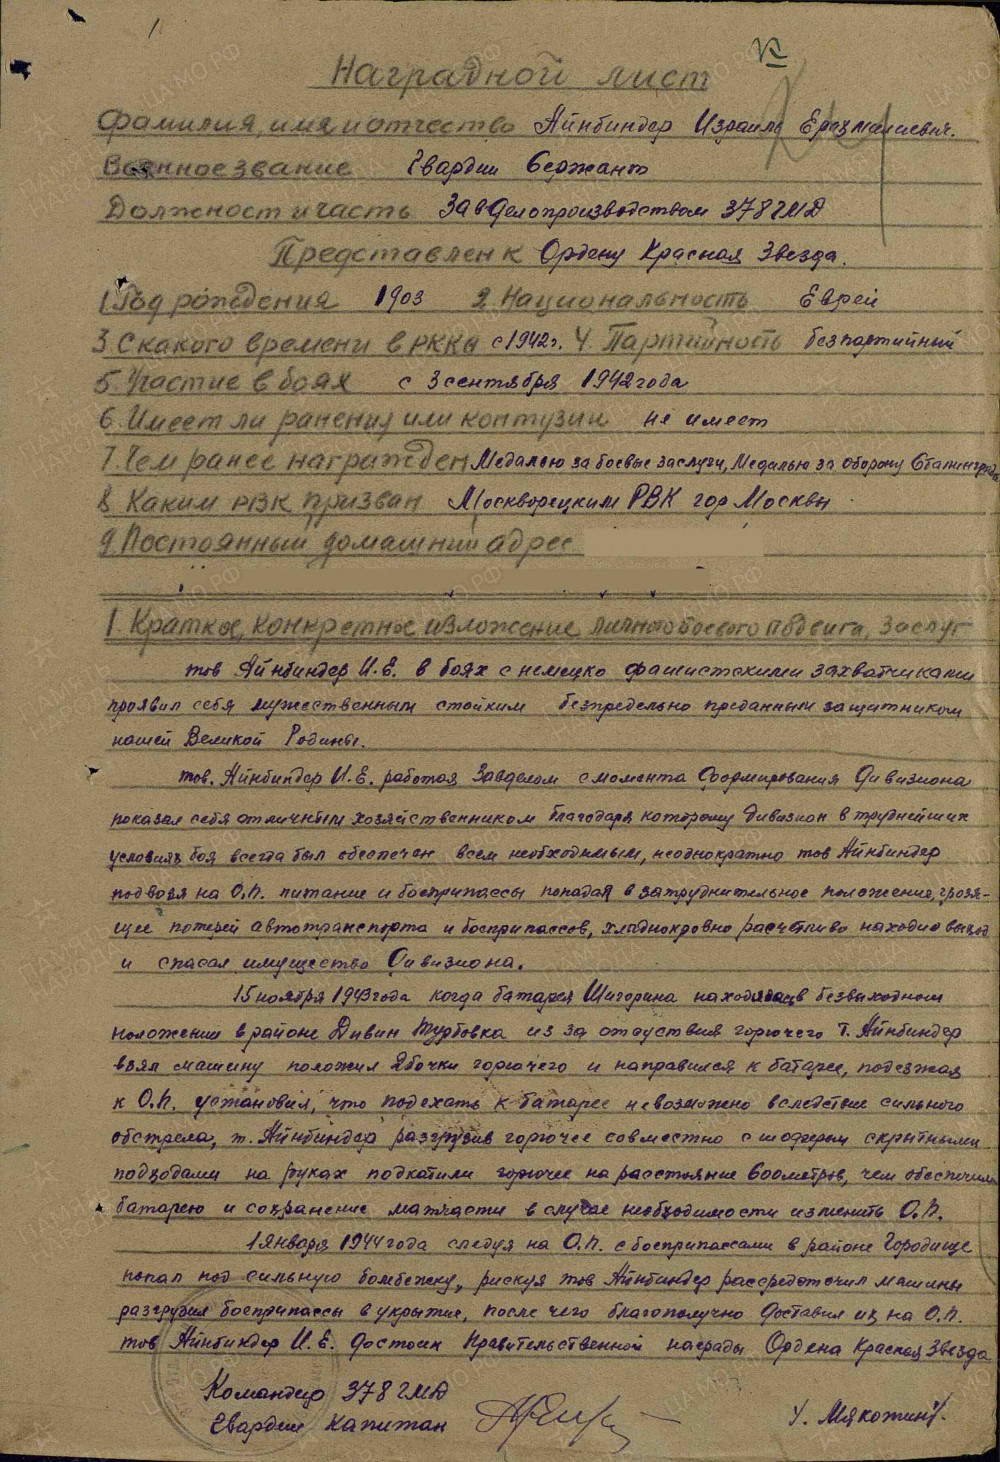 Наградной лист
Фамилия, имя и отчество Айнбиндер Израиль Ерахмилиевич.
Военное звание Гвардии Сержант
Должност и часть Зав Делопроизводством 378 ГМД
Представлен к Ордену Красная Звезда.
1. Год рождения 1903 2. Национальность Еврей
3. С какого времени в РККА с 1942 г. 4. Партийность безпартийный
5. Участие в боях с 3 сентября 1942 года
6. Имеет ли ранения или контузии не имеет
7. Чем ранее награжден Медалью за боевые заслуги, Медалью за оборону Сталинграда
8. Каким РВК призван Москворецким РВК гор Москвы
9. Постоянный домашний адрес
1. Краткое, конкретное изложение личного боевого подвига, заслуг
тов Айнбиндер И.Е. в боях с немецко фашистскими захватчиками
проявил себя мужественным стойким безпредельно преданным защитником
нашей Великой Родины.
тов. Айнбиндер И.Е. работая Завделом с момента сформирования Дивизиона
показал себя отличным хозяйственником благодаря которому Дивизион в труднейших
условиях боя всегда был обеспечен всем необходимым, неоднократно тов Айнбиндер
подвозя на О.П. питание и боеприпассы попадая в затруднительное положение, грозя-
щее потерей автотранспорта и боеприпассов, хладнокровно расчетливо находил выход
и спасал имущество Дивизиона.
15 ноября 1943 года когда батарея Шигорина находилась в безвыходном
положении в районе Дивин Турбовка из за отсуствия горючего т. Айнбиндер
взял машину положил 2 бочки горючего и направился к батарее, подезжая
к О.П. установил, что подехать к батарее невозможно вследствие сильного
обстрела, т. Айнбиндер разгрузив горючее совместно с шофером скрытными
подходами на руках подкатили горючее на расстояние 600 метров, чем обеспечили
батарею и сохранение матчасти в случае необходимости изменить О.П.
1 Января 1944 года следуя на О.П. с боеприпассами в районе Городище
попал под сильную бомбежку, рискуя тов Айнбиндер рассредоточил машины
разгрузил боеприпассы в укрытие, после чего благополучно доставил их на О.П.
тов Айнбиндер И.Е. достоин Правительственной награды Ордена Красная Звезда
Командир 378 ГМД
Гвардии Капитан / . Мякотин /.